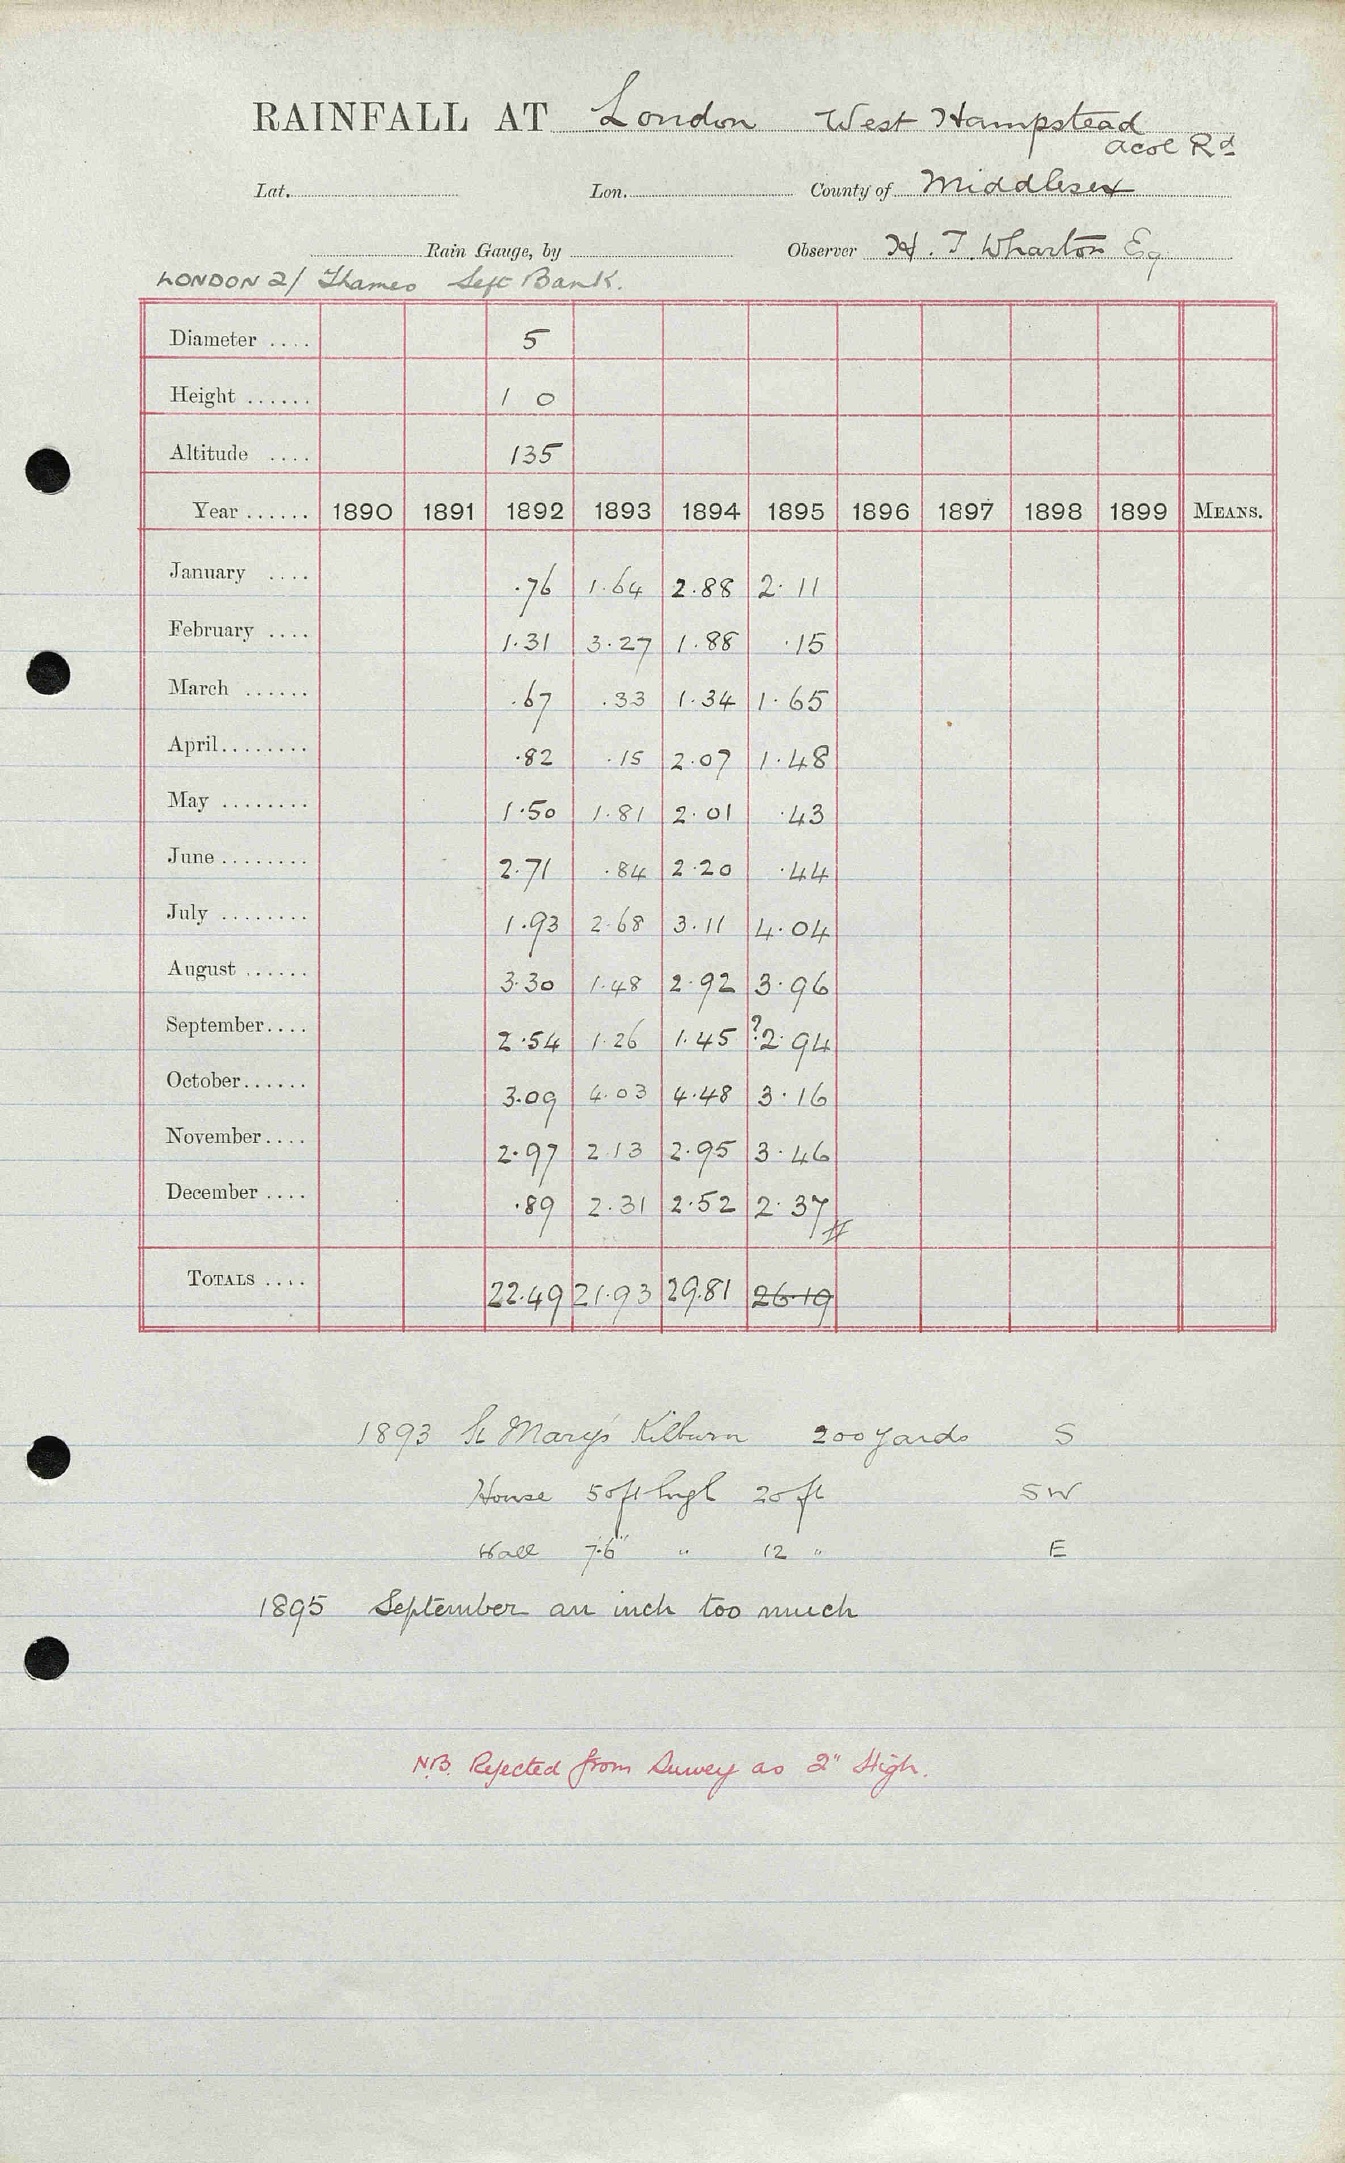 RAINFALL AT London West Hampstead
Acol Rd
Lat. Lon. County of Middlesex
Rain Gauge, by Observer H. T. Wharton Esq
LONDON 2/ Thames Left Bank.
Diameter .... 5
Height ...... 1 0
Altitude .... 135
Year ...... 1890 1891 1892 1893 1894 1895 1896 1897 1898 1899 MEANS.
January .... .76 1.64 2.88 2.11
February .... 1.31 3.27 1.88 .15
March ...... .67 .33 1.34 1.65
April........ .82 .15 2.07 1.48
May ........ 1.50 1.81 2.01 .43
June ........ 2.71 .84 2.20 .44
July ........ 1.93 2.68 3.11 4.04
August ...... 3.30 1.48 2.92 3.96
September.... 2.54 1.26 1.45 ?2.94
October...... 3.09 4.03 4.48 3.16
November.... 2.97 2.13 2.95 3.46
December .... .89 2.31 2.52 2.37
TOTALS .... 22.49 21.93 29.81 26.19
1893 St Mary's Kilburn 200 yards S
House 50ft high 20 ft SW
Wall 7.6" " 12 " E
1895 September an inch too much
N.B. Rejected from Survey as 2" High.